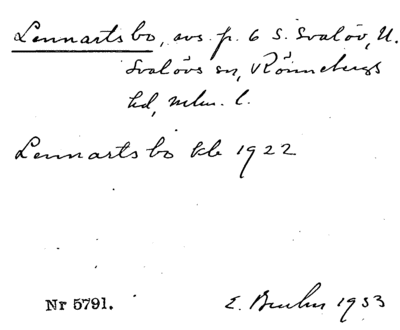 Lennartsbo, avs. p. 6 S. Svalöv, V.
Svalövs sn, Rönnebergs
hd, Mlm. l.
Lennartsbo kb 1922
Nr 5791.
E. Bruhn 1953